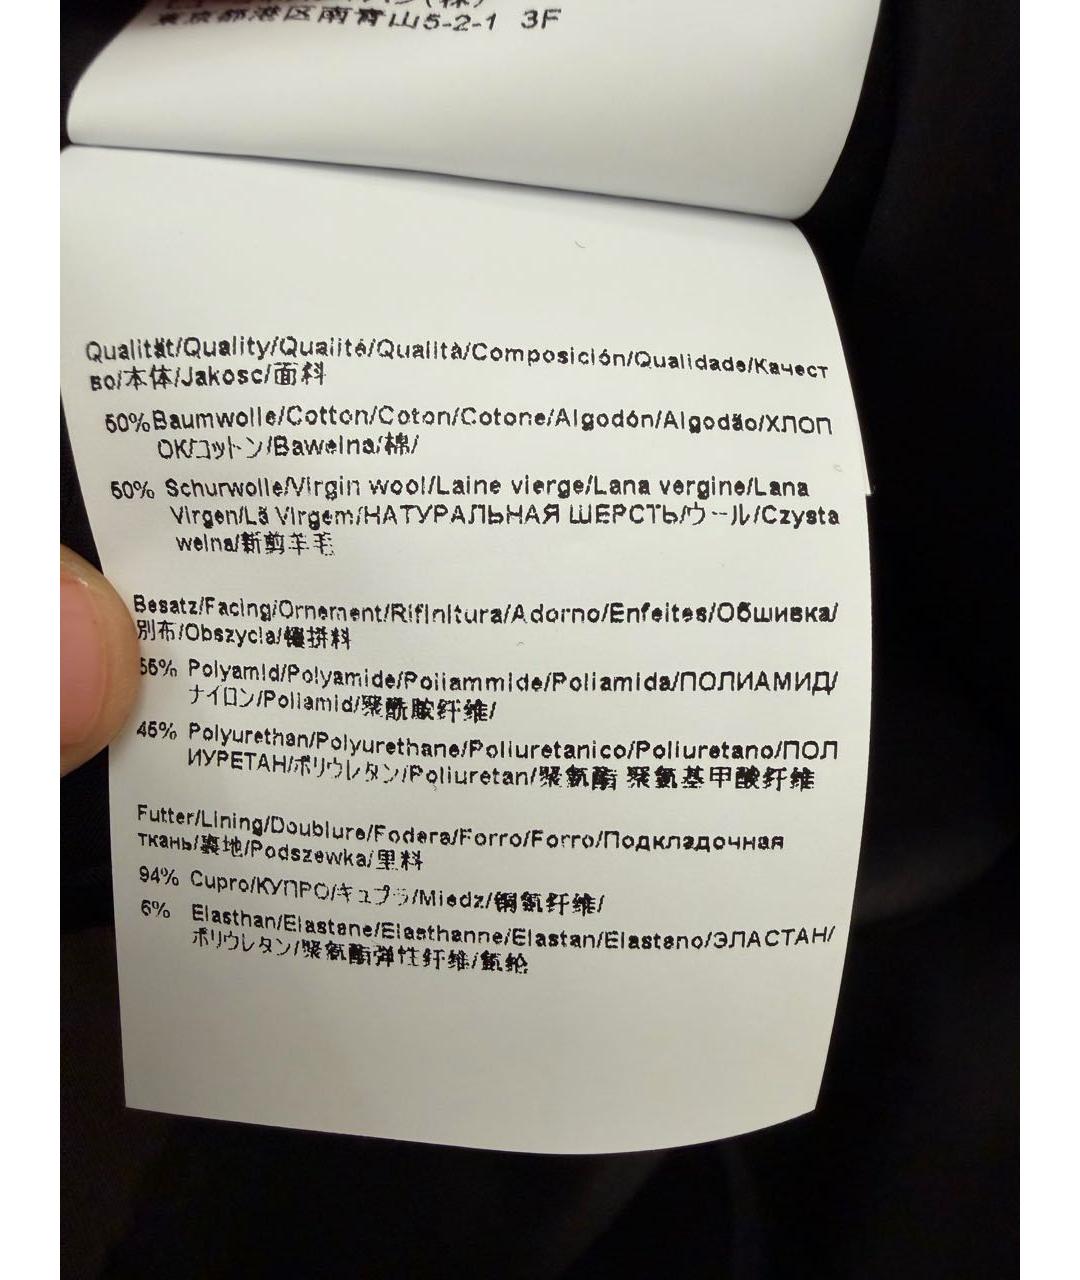 東京都港区南青山5-2-1 3F
Qualität/Quality/Qualité/Qualità/Composición/Qualidade/Качест
во/本体/Jakosc/面料
50% Baumwolle/Cotton/Coton/Cotone/Algodón/Algodão/ХЛОП
ОК/コットン/Bawelna/棉/
50% Schurwolle/Virgin wool/Laine vierge/Lana vergine/Lana
Virgen/Lã Virgem/НАТУРАЛЬНАЯ ШЕРСТЬ/ウール/Czysta
welna/新剪羊毛
Besatz/Facing/Ornement/Rifinitura/Adorno/Enfeites/Обшивка/
別布/Obszycia/镶拼料
55% Polyamid/Polyamide/Poliammide/Poliamida/ПОЛИАМИД/
ナイロン/Poliamid/聚酰胺纤维/
45% Polyurethan/Polyurethane/Poliuretanico/Poliuretano/ПОЛ
ИУРЕТАН/ポリウレタン/Poliuretan/聚氨酯 聚氨基甲酸纤维
Futter/Lining/Doublure/Fodera/Forro/Forro/Подкладочная
ткань/裏地/Podszewka/里料
94% Cupro/КУПРО/キュプラ/Miedz/铜氨纤维/
6% Elasthan/Elastane/Elasthanne/Elastan/Elasteno/ЭЛАСТАН/
ポリウレタン/聚氨酯弹性纤维/氨纶